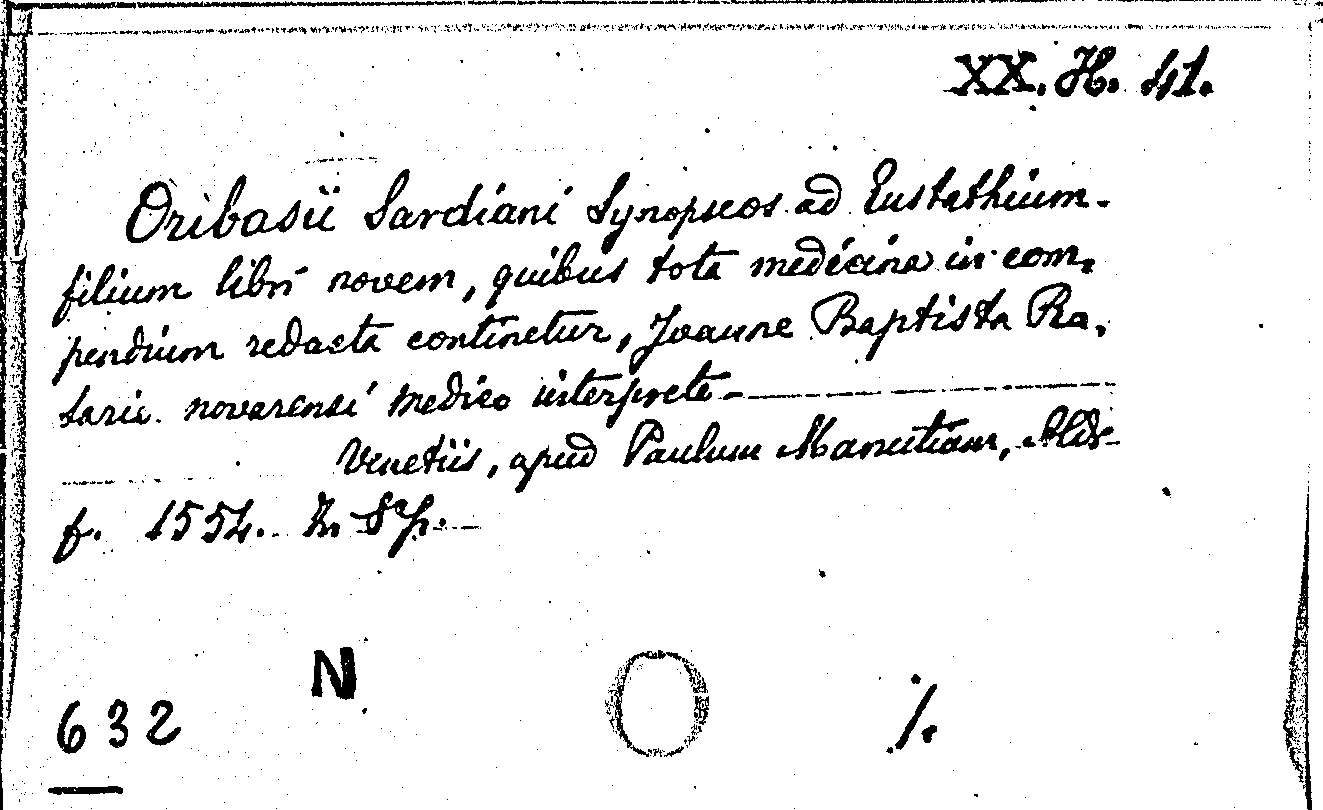 XX. H. 41.
Oribasii Sardiani Synopseos ad Eustathium
filium libri novem, quibus tota medicina in com,
pendium redacta continetur, Joanne Baptista Ra,
sario novarensi medico interprete
Venetiis, apud Paulum Manutium, Ald.
f. 1554.
N
632